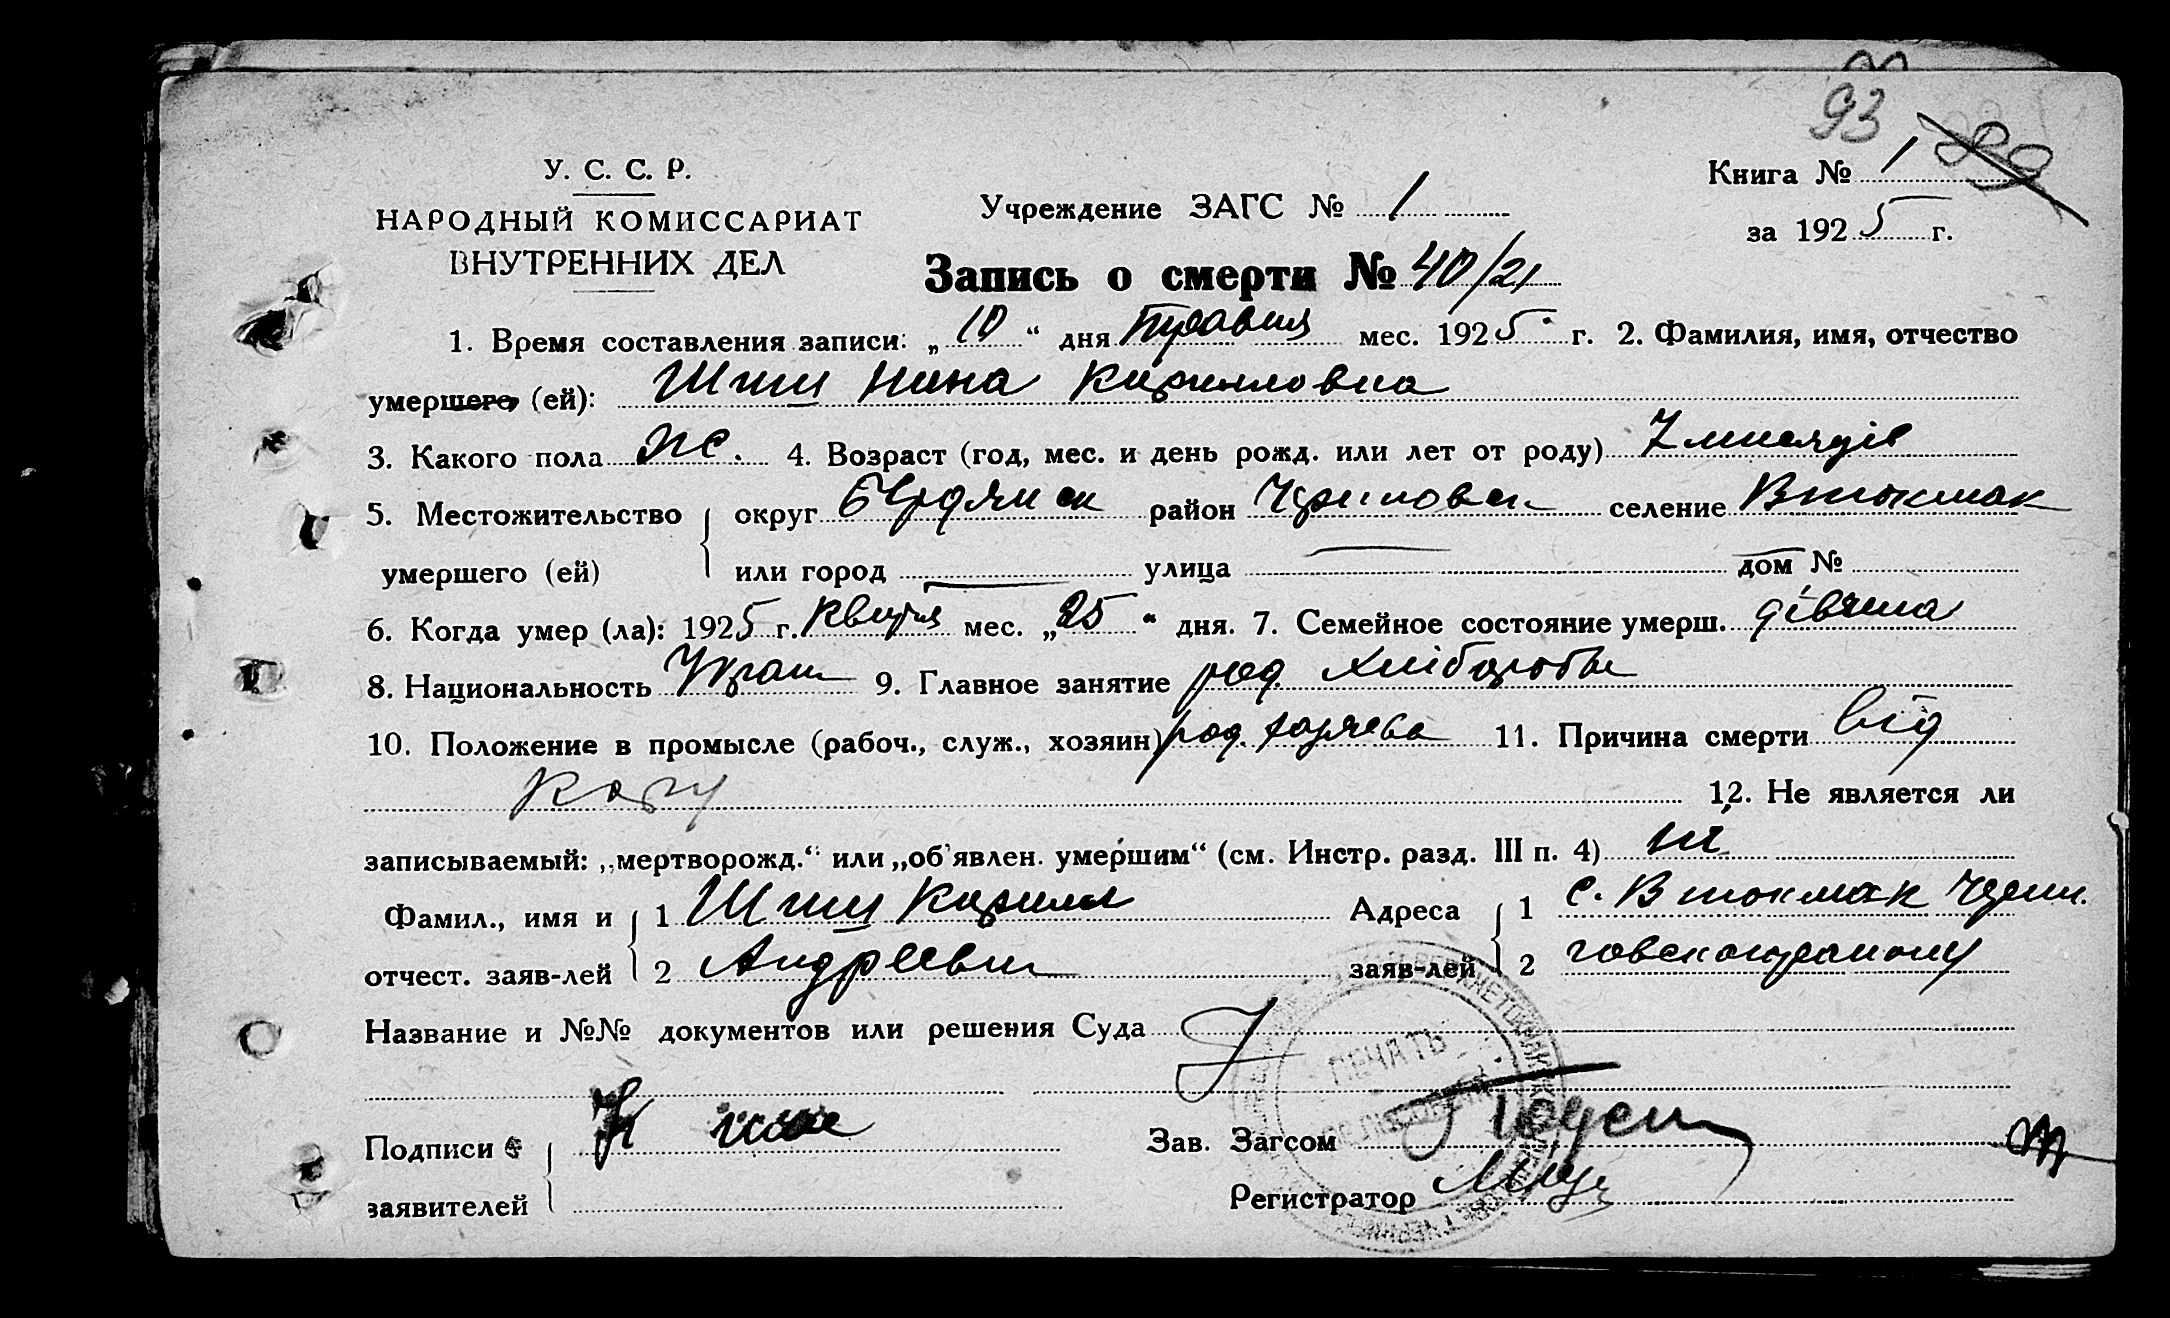 93
У. С. С. Р.
НАРОДНЫЙ КОМИССАРИАТ
ВНУТРЕННИХ ДЕЛ
Учреждение ЗАГС № 1
Книга № 1 89
за 1925 г.
Запись о смерти № 40/21
1. Время составления записи: „10“ дня Травня мес. 1925 г. 2. Фамилия, имя, отчество
умершего (ей): Нина Кирилловна
3. Какого пола ж. 4. Возраст (год, мес. и день рожд. или лет от роду) 7 мисяців
5. Местожительство округ Бердянск район селение Втокмак
умершего (ей) или город — улица — дом №
6. Когда умер (ла): 1925 г. Квитня мес. „25“ дня. 7. Семейное состояние умерш. дівчина
8. Национальность Украин 9. Главное занятие род хлібороби
10. Положение в промысле (рабоч., служ., хозяин) род. 11. Причина смерти від
кору
12. Не является ли
записываемый: „мертворожд.“ или „об'явлен. умершим“ (см. Инстр. разд. III п. 4) ні
Фамил., имя и 1 Кирилл Адреса 1 с. Втокмак
отчест. заяв-лей 2 Андреевич заяв-лей 2
Название и №№ документов или решения Суда
ПЕЧАТЬ
Подписи
Зав. Загсом
заявителей
Регистратор